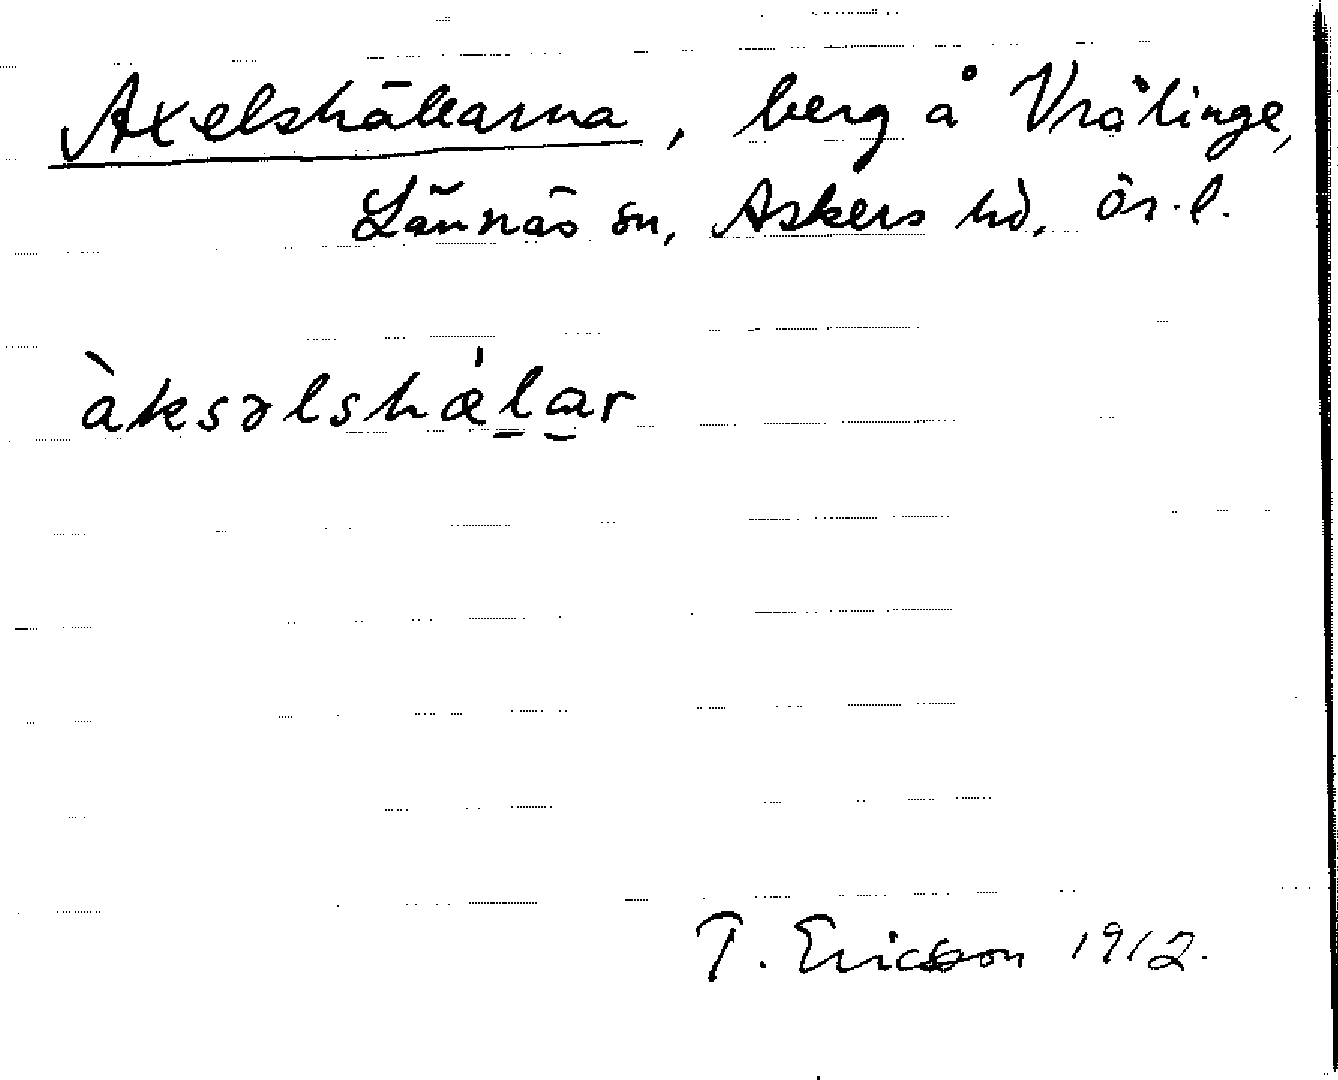 Axelshällarna, berg å Vrålinge,
Lännäs sn, Askers hd, Ör.l.
àksəlshæ̀l̠a̠r
T. Ericsson 1912.